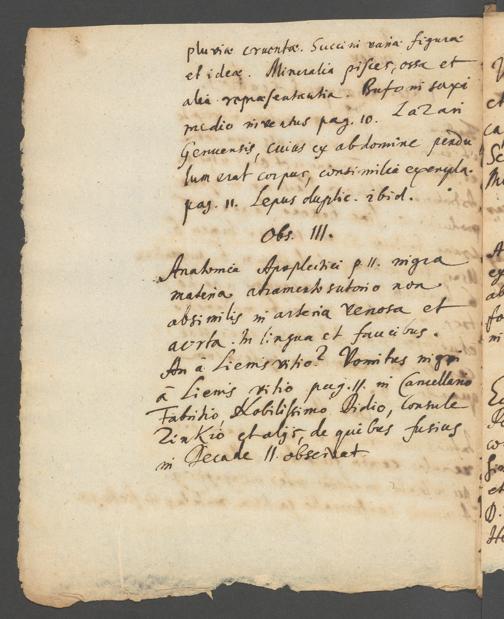 pluviæ cruentæ. Succini varia figuræ
et ideæ. Mineralia pisces, ossa et
alia repræsentantia Bufo in saxi
medio inventus pag. 10. Lazari
Genuensis, cuius ex abdomine pendu
lum erat corpus, consimilia exempla.
pag. 11. Lepus duplic. ibid.
Obs. III.
Anatomia Apoplectici p. 11. nigra
materia atramento sutorio non
absimilis in arteria venosa et
aorta. In lingua et faucibus.
An à Lienis vitio? Vomitus nigri
à Lienis vitio pag. 11. in Cancellario
Fabritio, Nobilissimo Didio, Consule
Zinkio et alijs, de quibus fusius
in Decade II. observat.